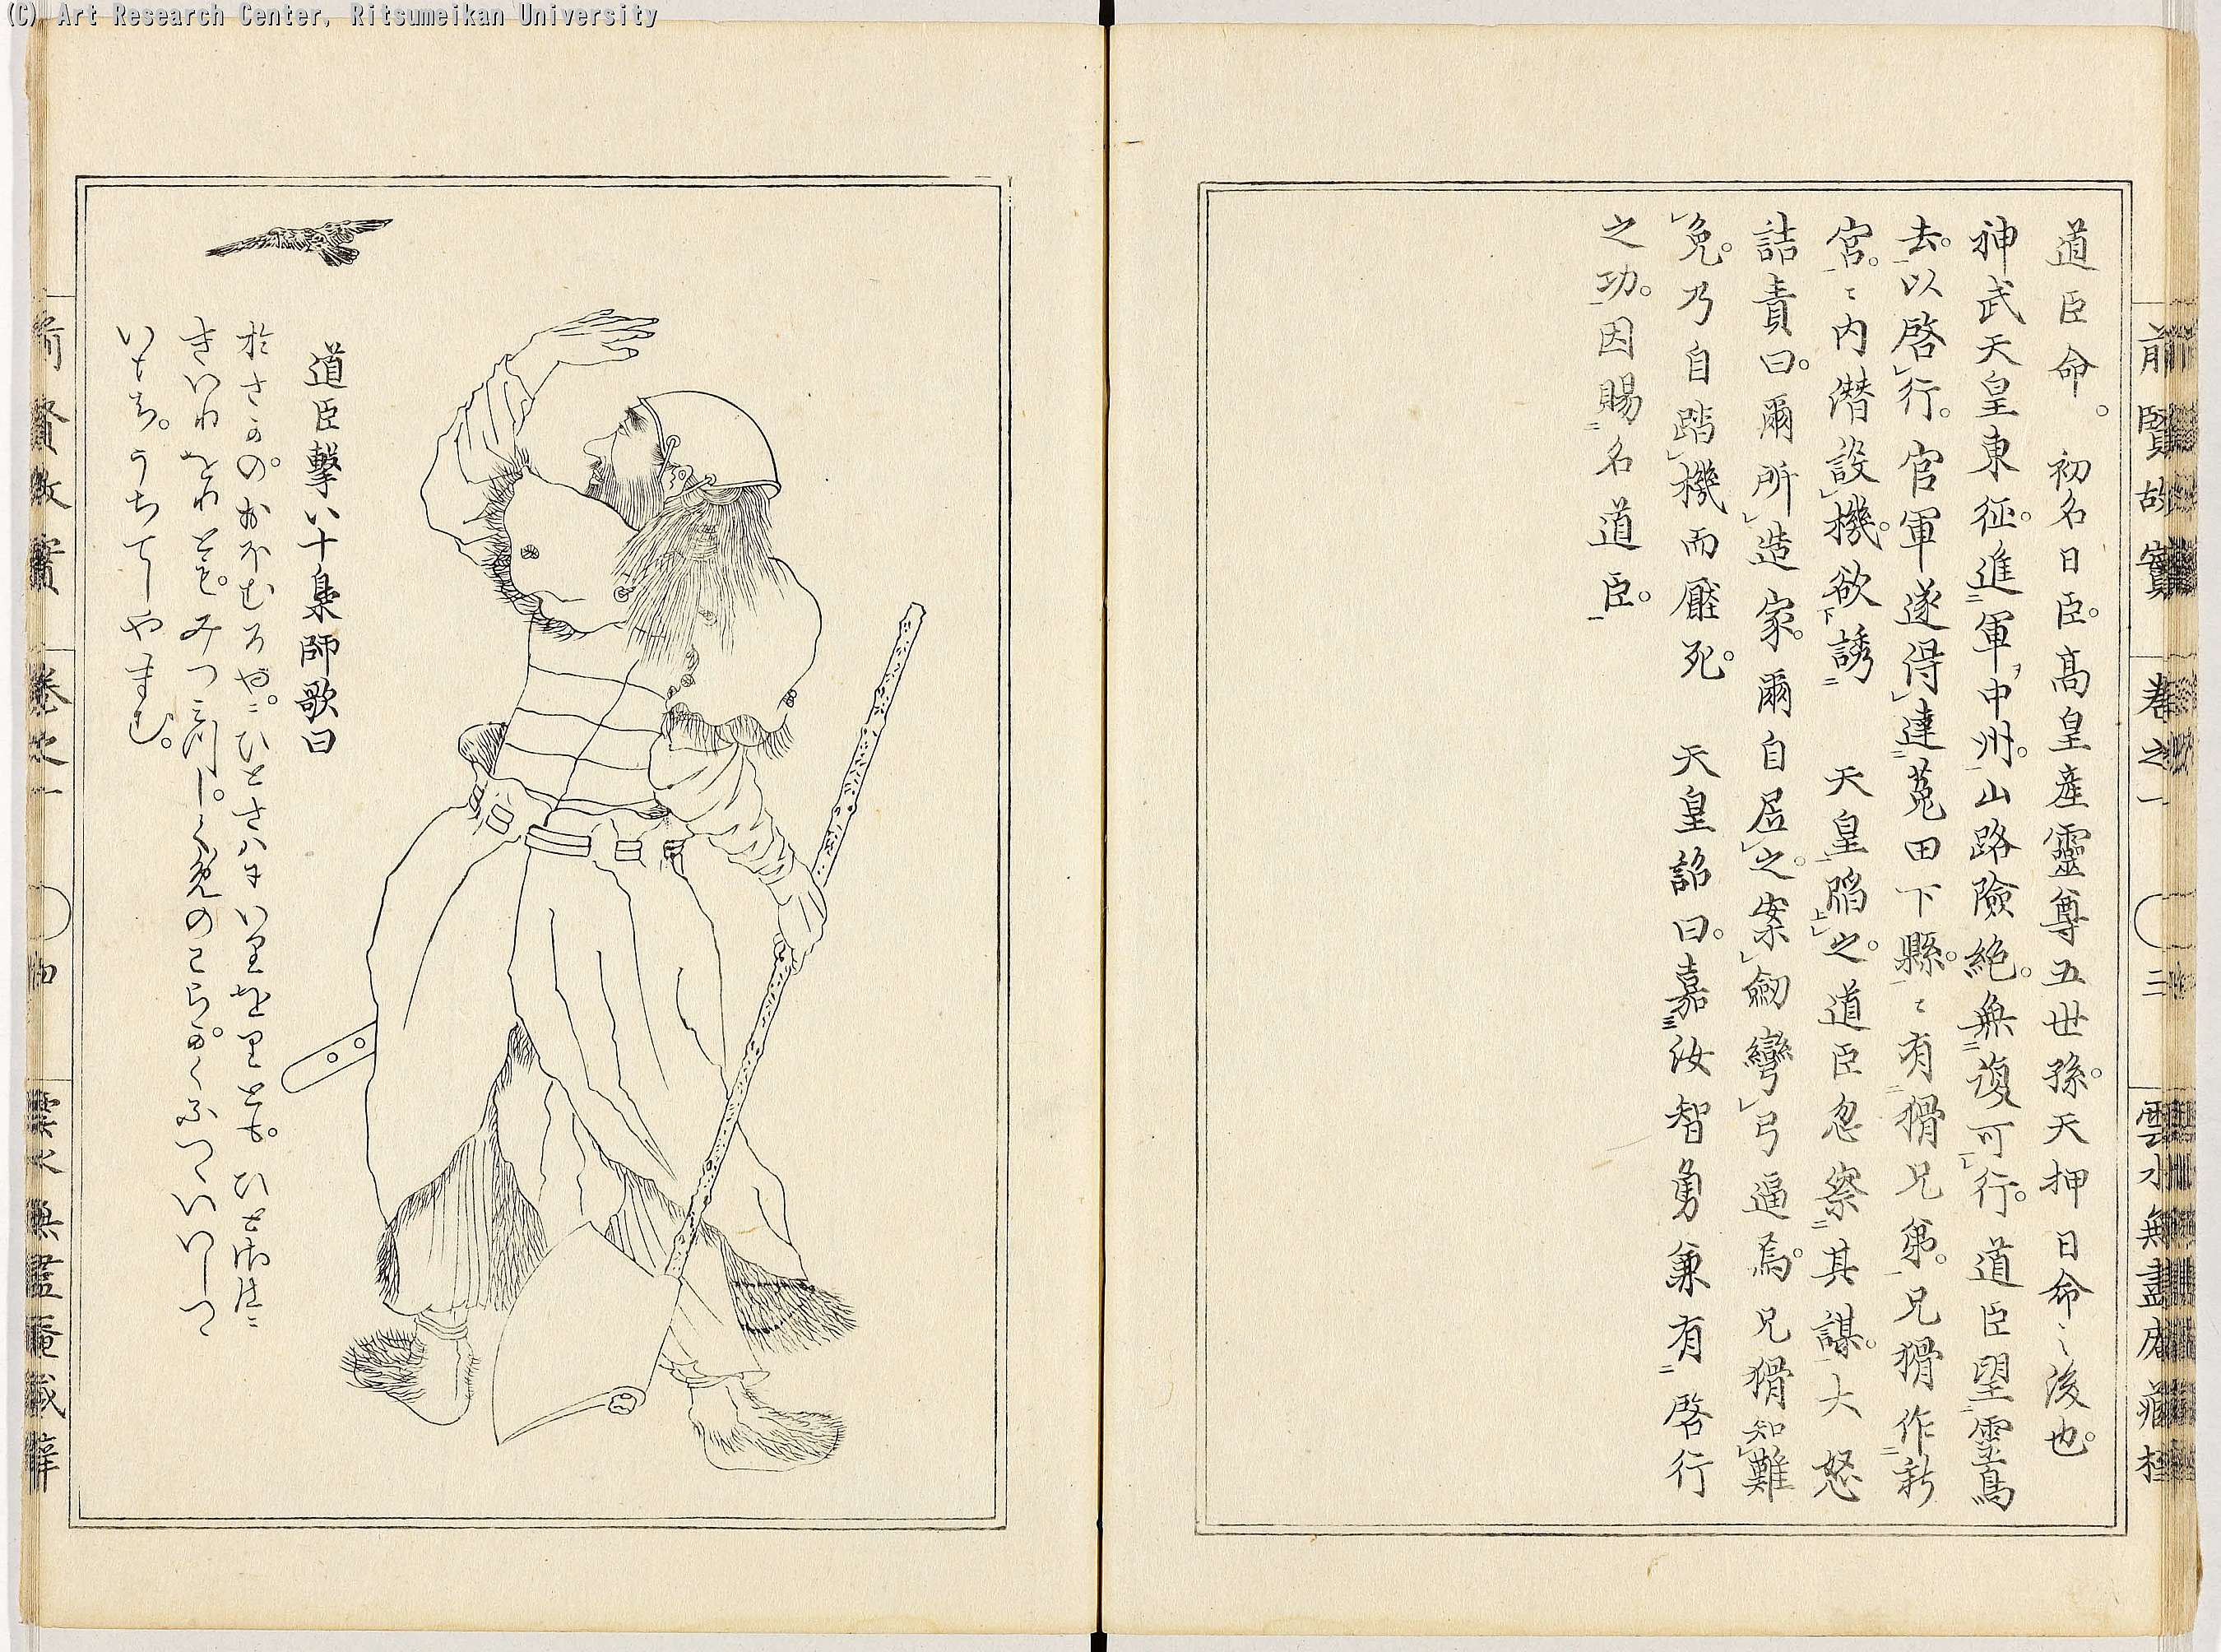 (C) Art Research Center, Ritsumeikan University
前賢故實 巻之一 三 雲水無盡庵藏
道臣命。初名日臣。高皇産靈尊五世孫。天押日命〻後也。
神武天皇東征。進軍中州。山路險絶。無復可行。道臣望靈烏
去。以啓行。官軍遂得達菟田下縣。〻有猾兄弟。兄猾作新
宮。〻内潜設機。欲誘 天皇陷之。道臣忽察其謀。大怒
詰責曰。爾所造家。爾自居之。案劔彎弓逼焉。兄猾知難
免。乃自蹈機而壓死。 天皇詔曰。嘉汝智勇兼有啓行
之功。因賜名道臣。
道臣撃八十梟師歌曰
於さかの。おほむろや。〻ひとさハに いりをりとも。ひと
きいりをりとも。みつみつし。くめのこらが。くふつゝいいしつゝ
いもち。うちてしやまむ。
前賢故實 巻之一 四 雲水無盡庵藏